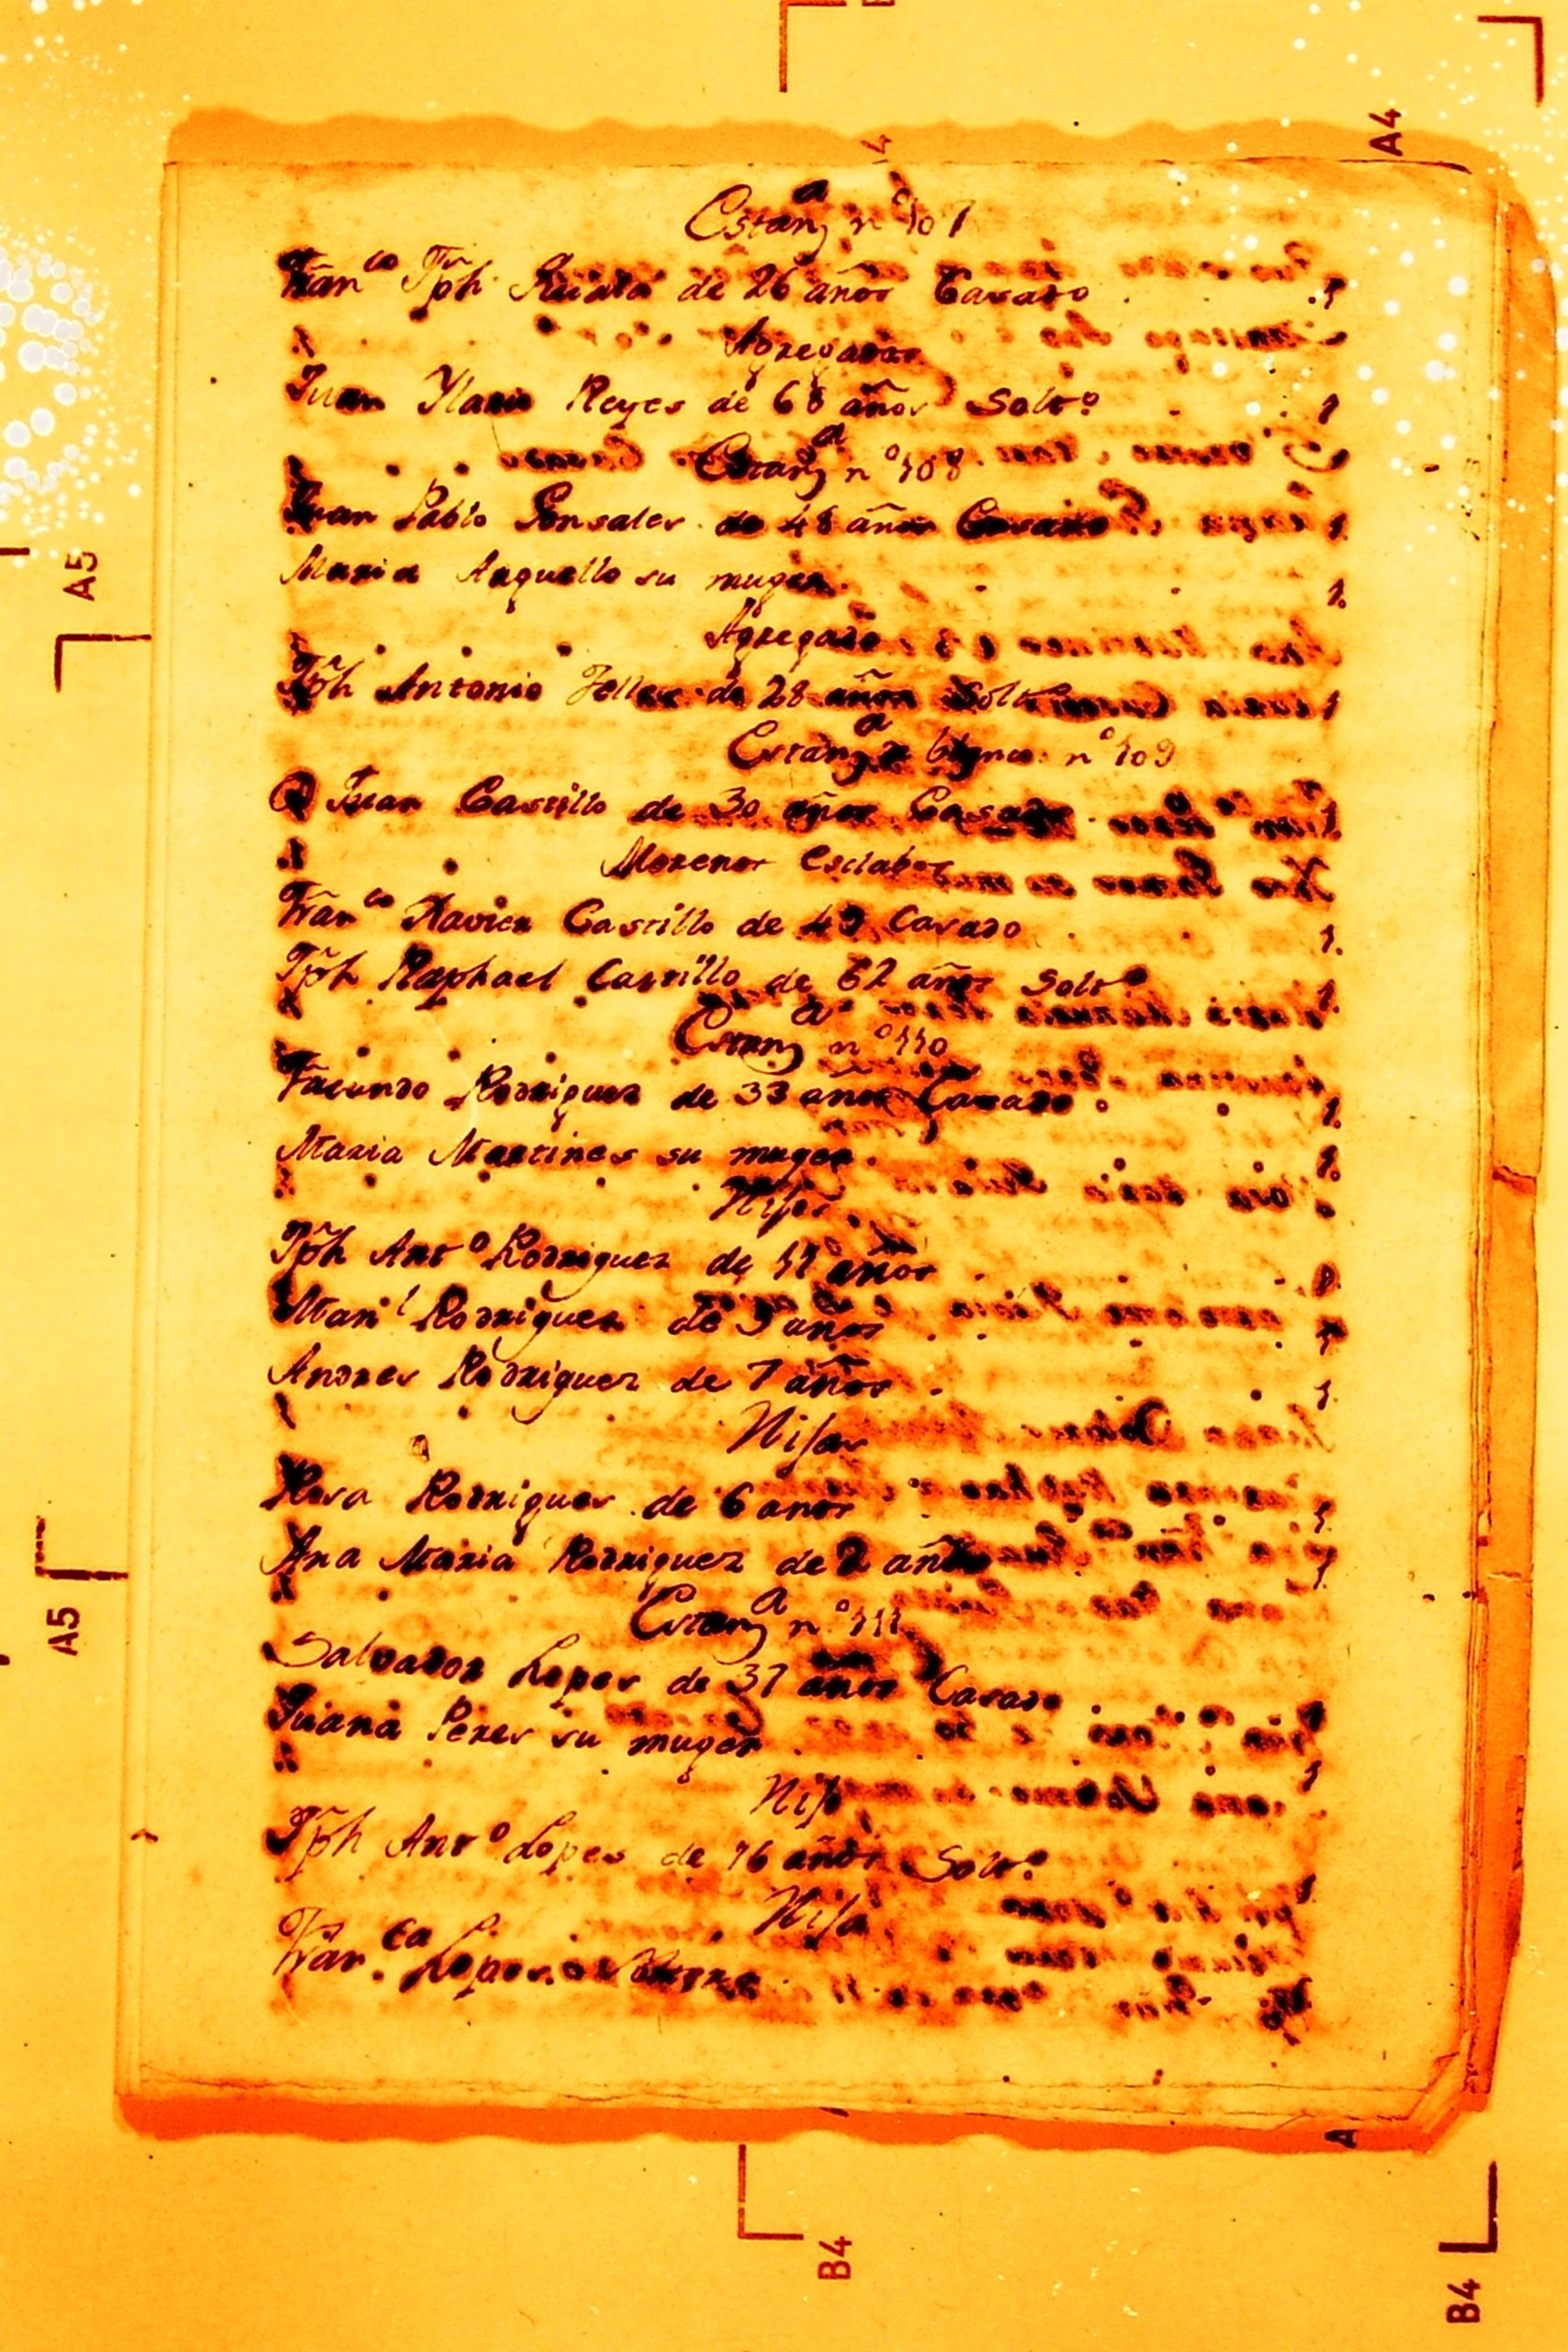 Estan^a n° 107
Fran^co Jph de 26 años Casado . 1
Agregados
Juan Ylario Reyes de 68 años Solt° 1
Estan^a n° 108
Juan Pablo Gonsales de 48 años Casado 1
Maria Arguello su muger. 1.
Agregado
Jph Antonio de 28 años Solt° 1
Estan^a n° 109
Juan Castillo de 30 años Casado . 1
Morenos Esclabos
Fran^co Xavier Castillo de 49 Casado 1.
Jph Raphael Castillo de 62 años Solt° 1.
Estan^a n° 110
Facundo Rodriguez de 33 años Casado . 1.
Maria Martines su muger . 1.
Hijos
Jph Ant° Rodriguez de 11 años . 1
Man^l Rodriguez de 9 años . 1
Andres Rodriguez de 7 años . 1.
Hijas
Rosa Rodrigues de 6 años 1.
Ana Maria Rodriguez de 2 años 1.
Estan^a n° 111
Salvador Lopes de 37 años Casado . 1
Juana Peres su muger . 1
Hijo
Jph Ant° Lopes de 16 años Solt° 1
Hija
Fran^ca Lopes
A4
A5
A5
B4
B4